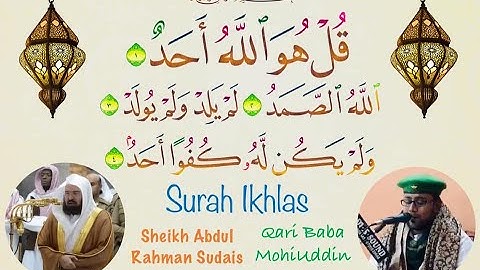 قُلْ هُوَ ٱللَّهُ أَحَدٌ ١
ٱللَّهُ ٱلصَّمَدُ ٢ لَمْ يَلِدْ وَلَمْ يُولَدْ ٣
وَلَمْ يَكُن لَّهُۥ كُفُوًا أَحَدٌۢ ٤
Surah Ikhlas
Sheikh Abdul
Rahman Sudais
Qari Baba
MohiUddin